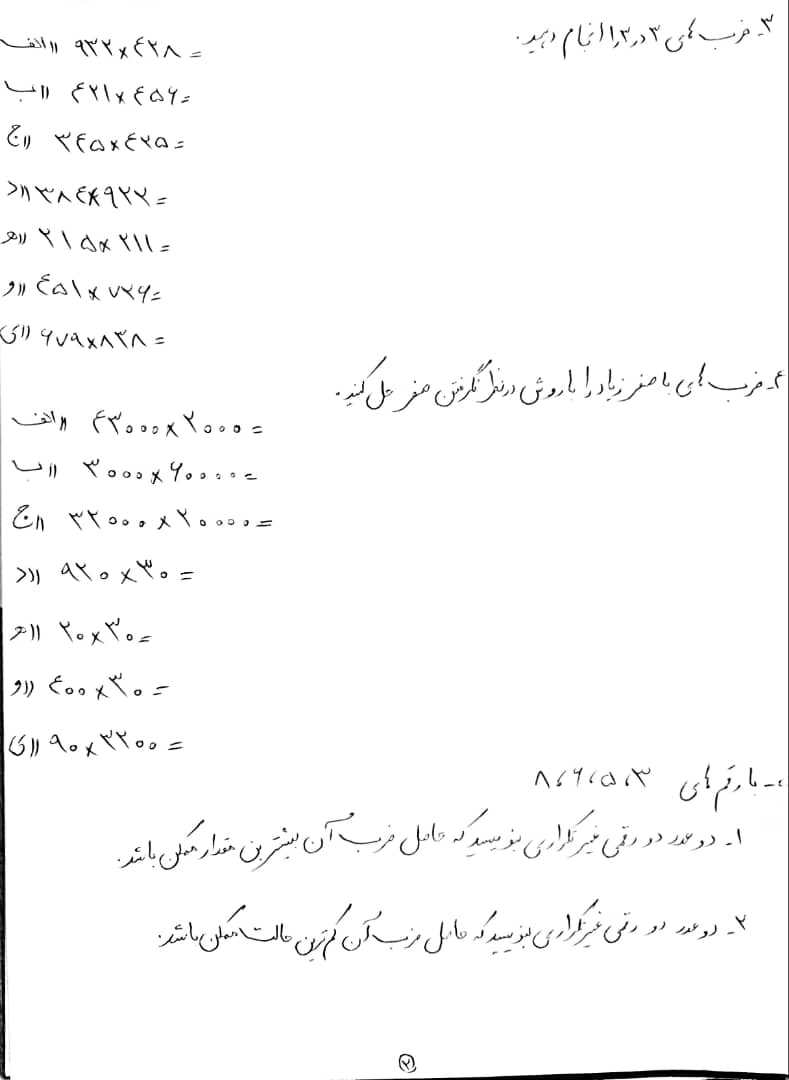 ۳ـ ضرب های ۳ در ۳ را انجام دهید.
الف)) ۹۳۲×۴۲۸ =
ب)) ۴۲۱×۴۵۶ =
ج)) ۳۴۵×۴۲۵ =
د)) ۳۸۴×۹۲۲ =
ه)) ۲۱۵×۲۱۱ =
و)) ۴۵۱×۷۲۶ =
ی)) ۶۷۹×۸۳۸ =
۴ـ ضرب های با صفر زیاد را با روش در نظر نگرفتن صفر حل کنید.
الف)) ۴۳۰۰۰×۲۰۰۰ =
ب)) ۳۰۰۰×۶۰۰۰۰ =
ج)) ۳۲۰۰۰×۲۰۰۰۰ =
د)) ۹۲۰×۳۰ =
ه)) ۲۰×۳۰ =
و)) ۴۰۰×۳۰ =
ی)) ۹۰×۳۲۰۰ =
ـ با رقم های ۳، ۵، ۶، ۸
۱ـ دو عدد دو رقمی غیر تکراری بنویسید که حاصل ضرب آن بیشترین مقدار ممکن باشد.
۲ـ دو عدد دو رقمی غیر تکراری بنویسید که حاصل ضرب آن کم ترین حالت ممکن باشد.
۲